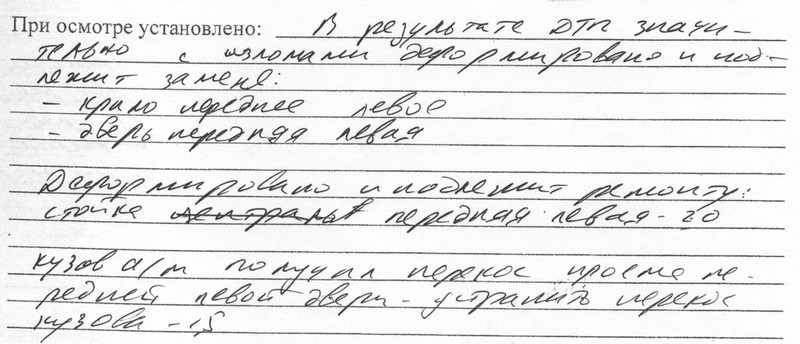 При осмотре установлено: В результате ДТП значи-
тельно с изломами деформировано и под-
лежит замене:
- крыло переднее левое
- дверь передняя левая
Деформировано и подлежит ремонту:
стойка центральн передняя левая - 2,0
кузов а/м получил перекос проема пе-
редней левой двери - устранить перекос
кузова - 1,5